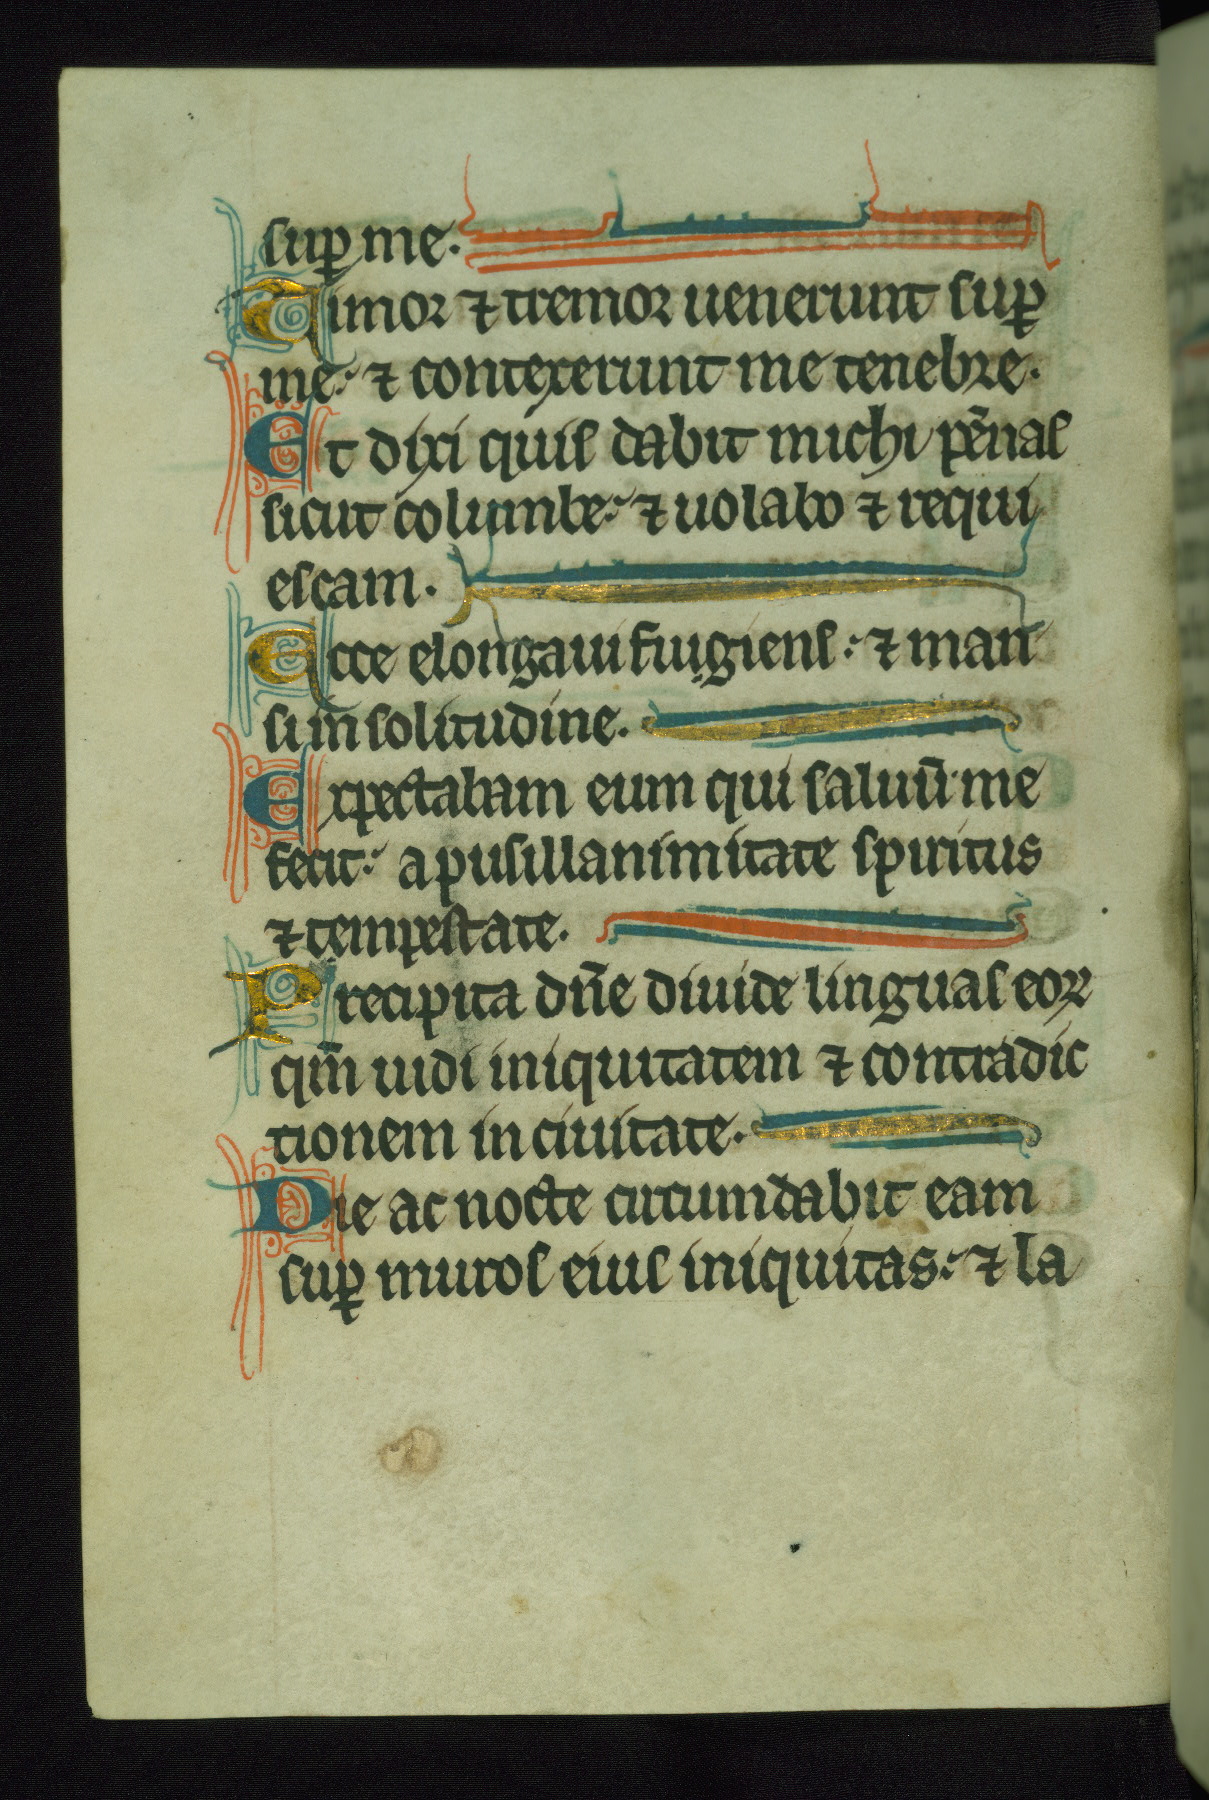 suꝑ me.
Timor ⁊ tremor uenerunt suꝑ
me: ⁊ contexerunt me tenebre.
Et dixi quis dabit michi pēnas
sicut columbe: ⁊ uolabo ⁊ requi
escam.
Ecce elongaui fugiens: ⁊ man
si in solitudine.
Expectabam eum qui saluū me
fecit: a pusillanimitate spiritus
⁊ tempestate.
Precipita dn̄e diuide linguas eoꝝ
qm̄ uidi iniquitatem ⁊ contradic
tionem in ciuitate.
Die ac nocte circumdabit eam
suꝑ muros eius iniquitas: ⁊ la